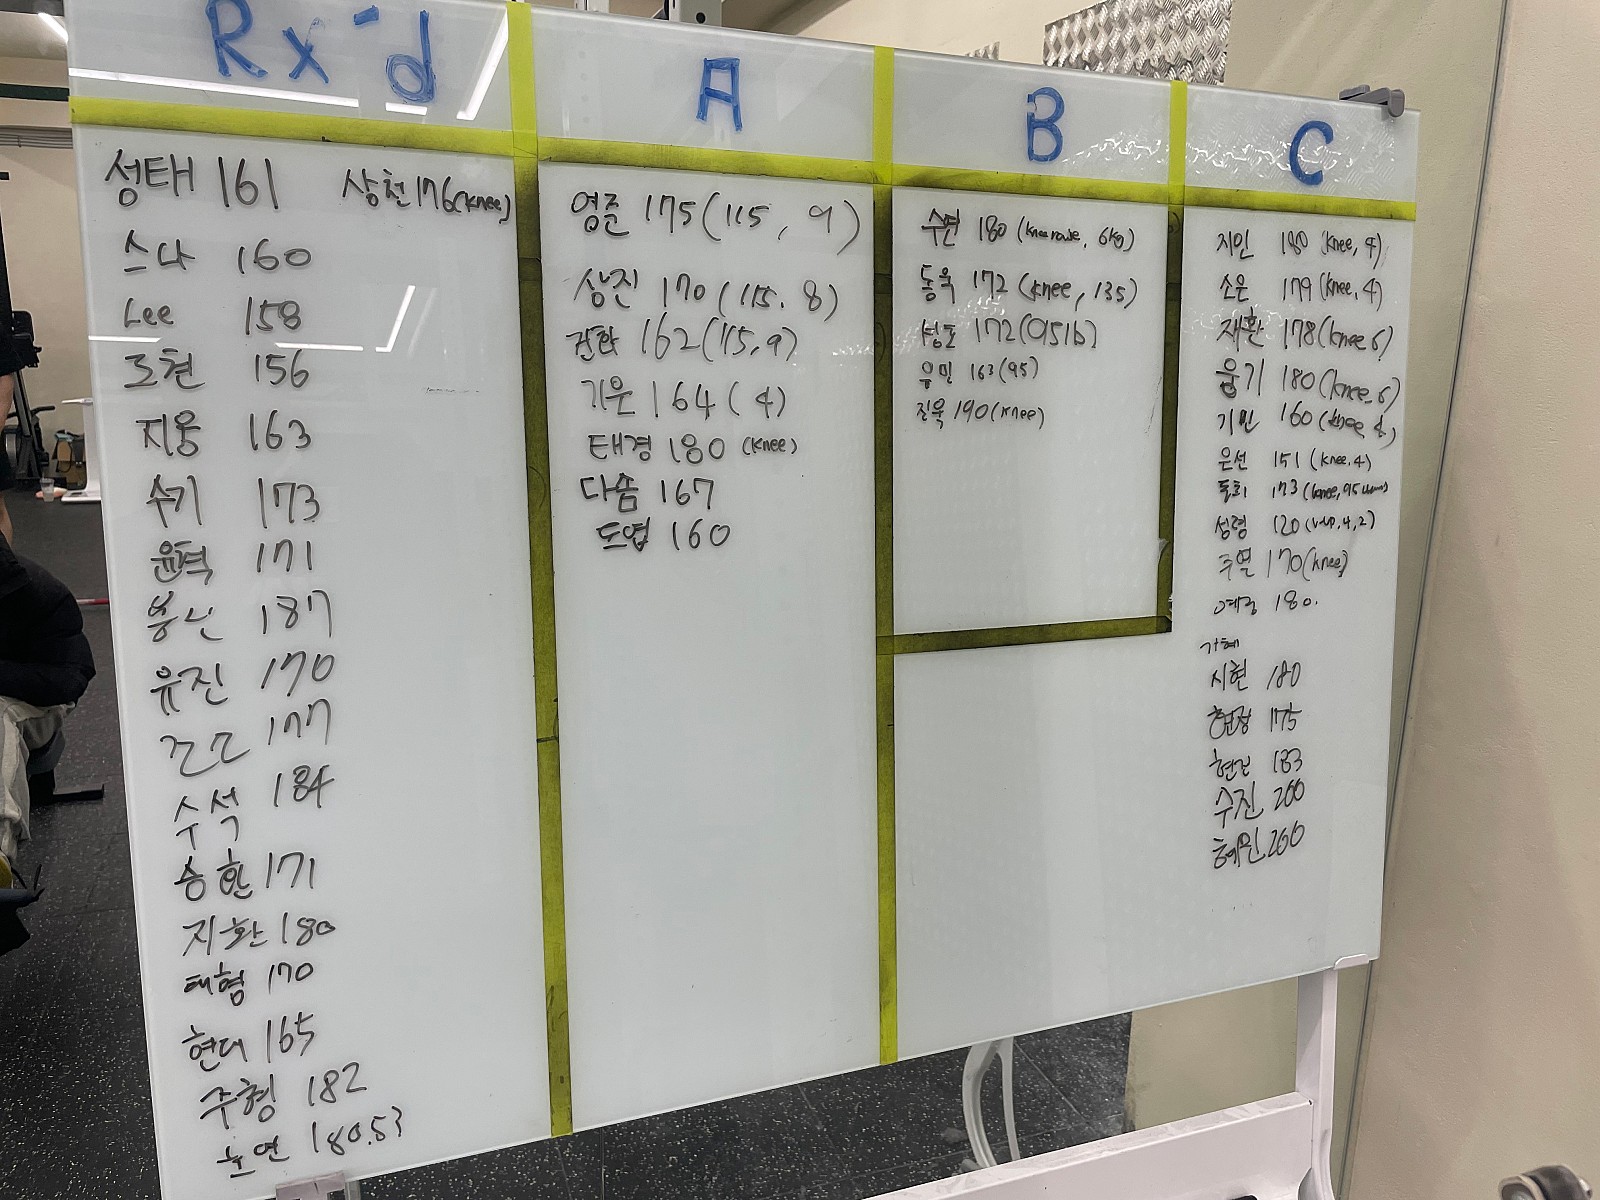 Rx'd
성태 161 상천 176(knee)
스나 160
Lee 158
도현 156
지웅 163
수기 173
윤혁 171
187
유진 170
177
수석 184
승환 171
지환 180
태형 170
현대 165
주형 182
180.53
A
영준 175(115, 9)
상진 170(115. 8)
162(115,9)
기운 164(4)
태경 180 (knee)
다솜 167
도엽 160
B
수연 180 (knee raise, 6kg)
동욱 172 (knee, 135)
성도 172(95lb)
유민 163(95)
진욱 190(knee)
C
지인 180 (knee, 4)
소은 179 (knee, 4)
재환 178(knee 6)
웅기 180(knee, 6)
기민 160(knee 4)
은선 151 (knee.4)
173 (knee, 95
성령 120 4,2)
주열 170(knee)
180.
가혜
시현 180
현정 175
183
수진 200
혜원 200